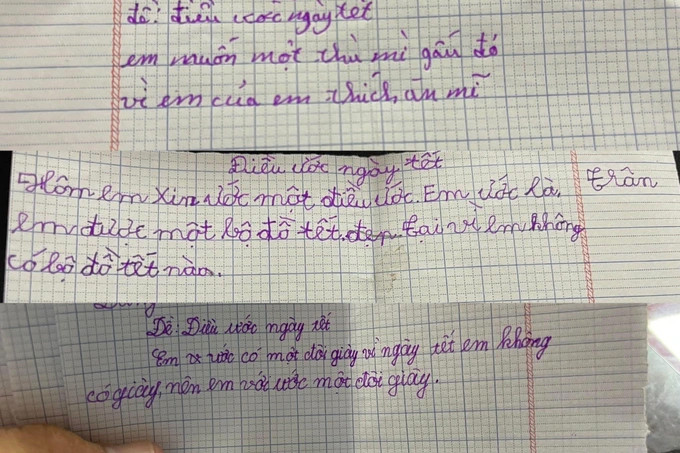 đề: điều ước ngày tết
em muốn một thù mì gấu đỏ
vì em của em thích ăn mì
Điều ước ngày tết
Hôm em xin ước một điều ước. Em ước là, trân
em được một bộ đồ tết đẹp. tại vì em không
có bộ đồ tết nào.
Đề: Điều ước ngày tết
Em ước có một đôi giày vì ngày tết em không
có giày, nên em với ước một đôi giày.